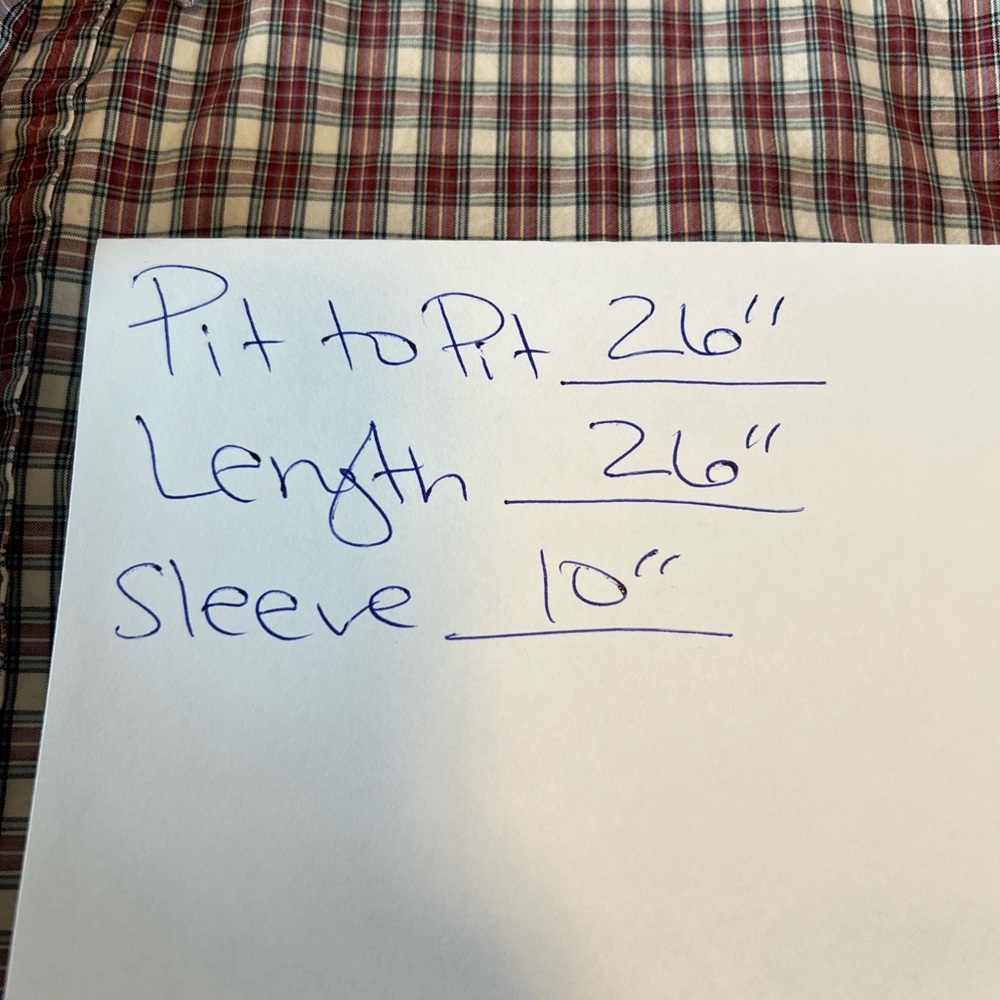 Pit to Pit 26"
Length 26"
Sleeve 10"